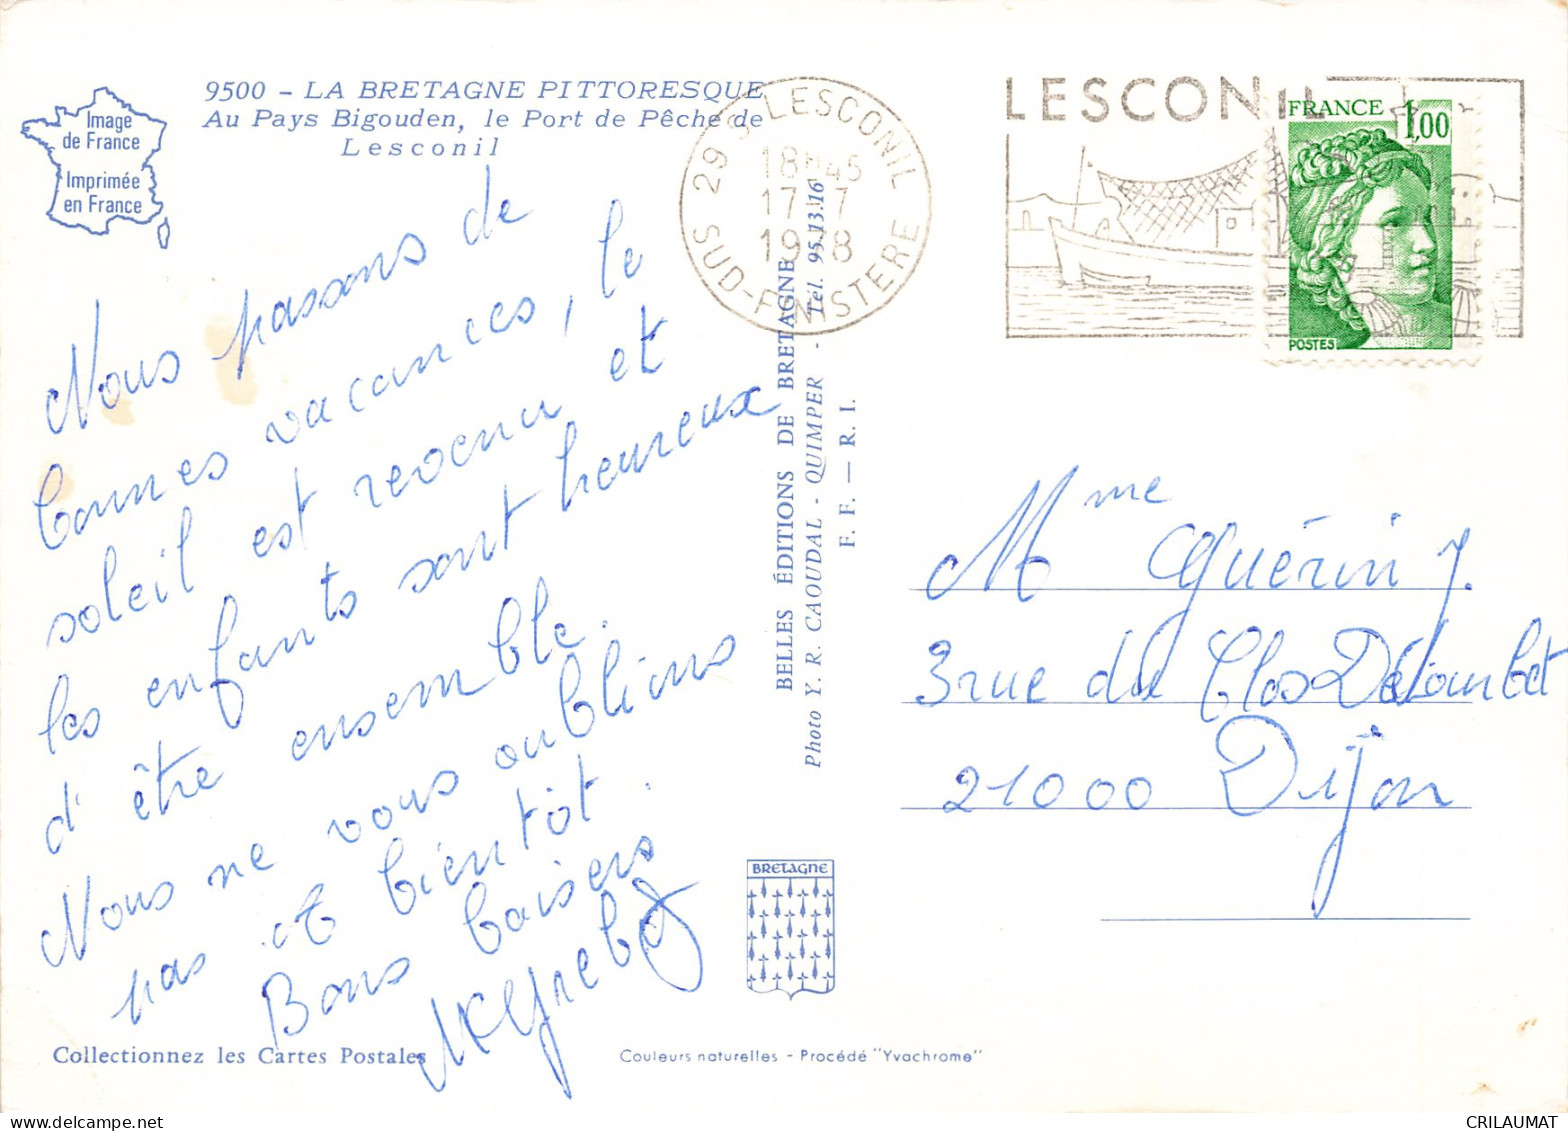 Image
de France
Imprimée
en France
9500 - LA BRETAGNE PITTORESQUE
Au Pays Bigouden, le Port de Pêche de
Lesconil
29 LESCONIL
18H45
17-7
1978
SUD-FINISTERE
LESCONIL
FRANCE 1,00
POSTES
Nous passons de
bonnes vacances, le
soleil est revenu et
les enfants sont heureux
d'être ensemble.
Nous ne vous oublions
pas et bientôt.
Bons baisers
BELLES ÉDITIONS DE BRETAGNE
Photo Y. R. CAOUDAL - QUIMPER - Tel. 95.13.16
F. F. — R. I.
Mme Guérin J.
3 rue du Clos
21000 Dijon
BRETAGNE
Collectionnez les Cartes Postales
Couleurs naturelles - Procédé "Yvachrome"
CRILAUMAT